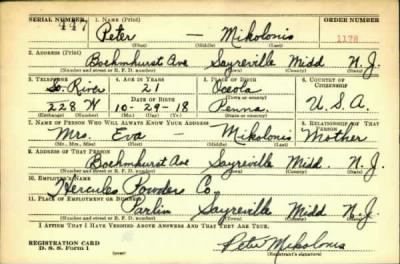 SERIAL NUMBER 1. NAME (Print) ORDER NUMBER
447 Peter — Mikolonis 1178
(First) (Middle) (Last)
2. ADDRESS (Print)
Boehmhurst Ave Sayreville Midd N. J.
(Number and street or R. F. D. number) (Town) (County) (State)
3. TELEPHONE 4. AGE IN YEARS 5. PLACE OF BIRTH 6. COUNTRY OF CITIZENSHIP
So. River 21 Osceola
DATE OF BIRTH (Town or county)
228 W 10-29-18 Penna. U.S.A.
(Exchange) (Number) (Mo.) (Day) (Yr.) (State or country)
7. NAME OF PERSON WHO WILL ALWAYS KNOW YOUR ADDRESS 8. RELATIONSHIP OF THAT PERSON
Mrs. Eva — Mikolonis Mother
(Mr., Mrs., Miss) (First) (Middle) (Last)
9. ADDRESS OF THAT PERSON
Boehmhurst Ave Sayreville Midd. N. J.
(Number and street or R. F. D. number) (Town) (County) (State)
10. EMPLOYER'S NAME
Hercules Powders Co.
11. PLACE OF EMPLOYMENT OR BUSINESS
Parlin Sayreville Midd N. J.
(Number and street or R. F. D. number) (Town) (County) (State)
I AFFIRM THAT I HAVE VERIFIED ABOVE ANSWERS AND THAT THEY ARE TRUE.
REGISTRATION CARD
D. S. S. Form 1 (over) Peter Mikolonis
(Registrant's signature)